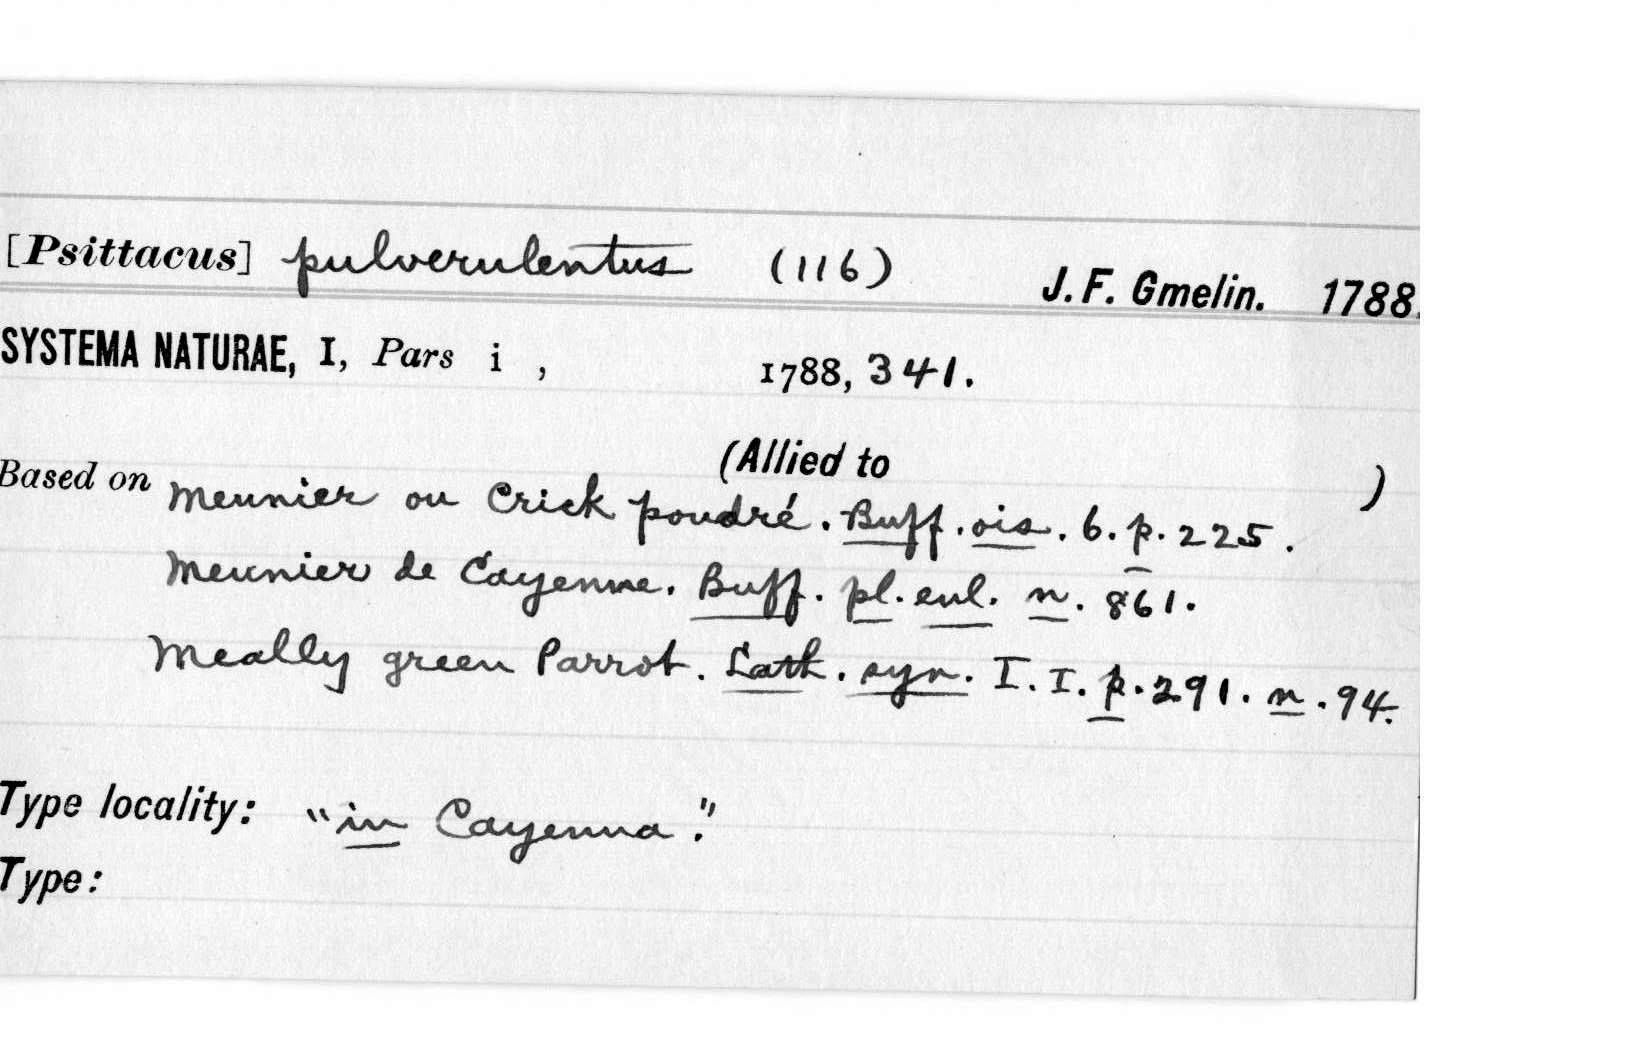 [Psittacus] pulverulentus (116) J. F. Gmelin. 1788.
SYSTEMA NATURAE, I, Pars i , 1788, 341.
(Allied to )
Based on Meunier ou Crick poudré. Buff. ois. 6. p. 225.
Meunier de Cayenne. Buff. pl. enl. n. 861.
Meally green Parrot. Lath. syn. I. I. p. 291. n. 94.
Type locality: "in Cayenna."
Type: